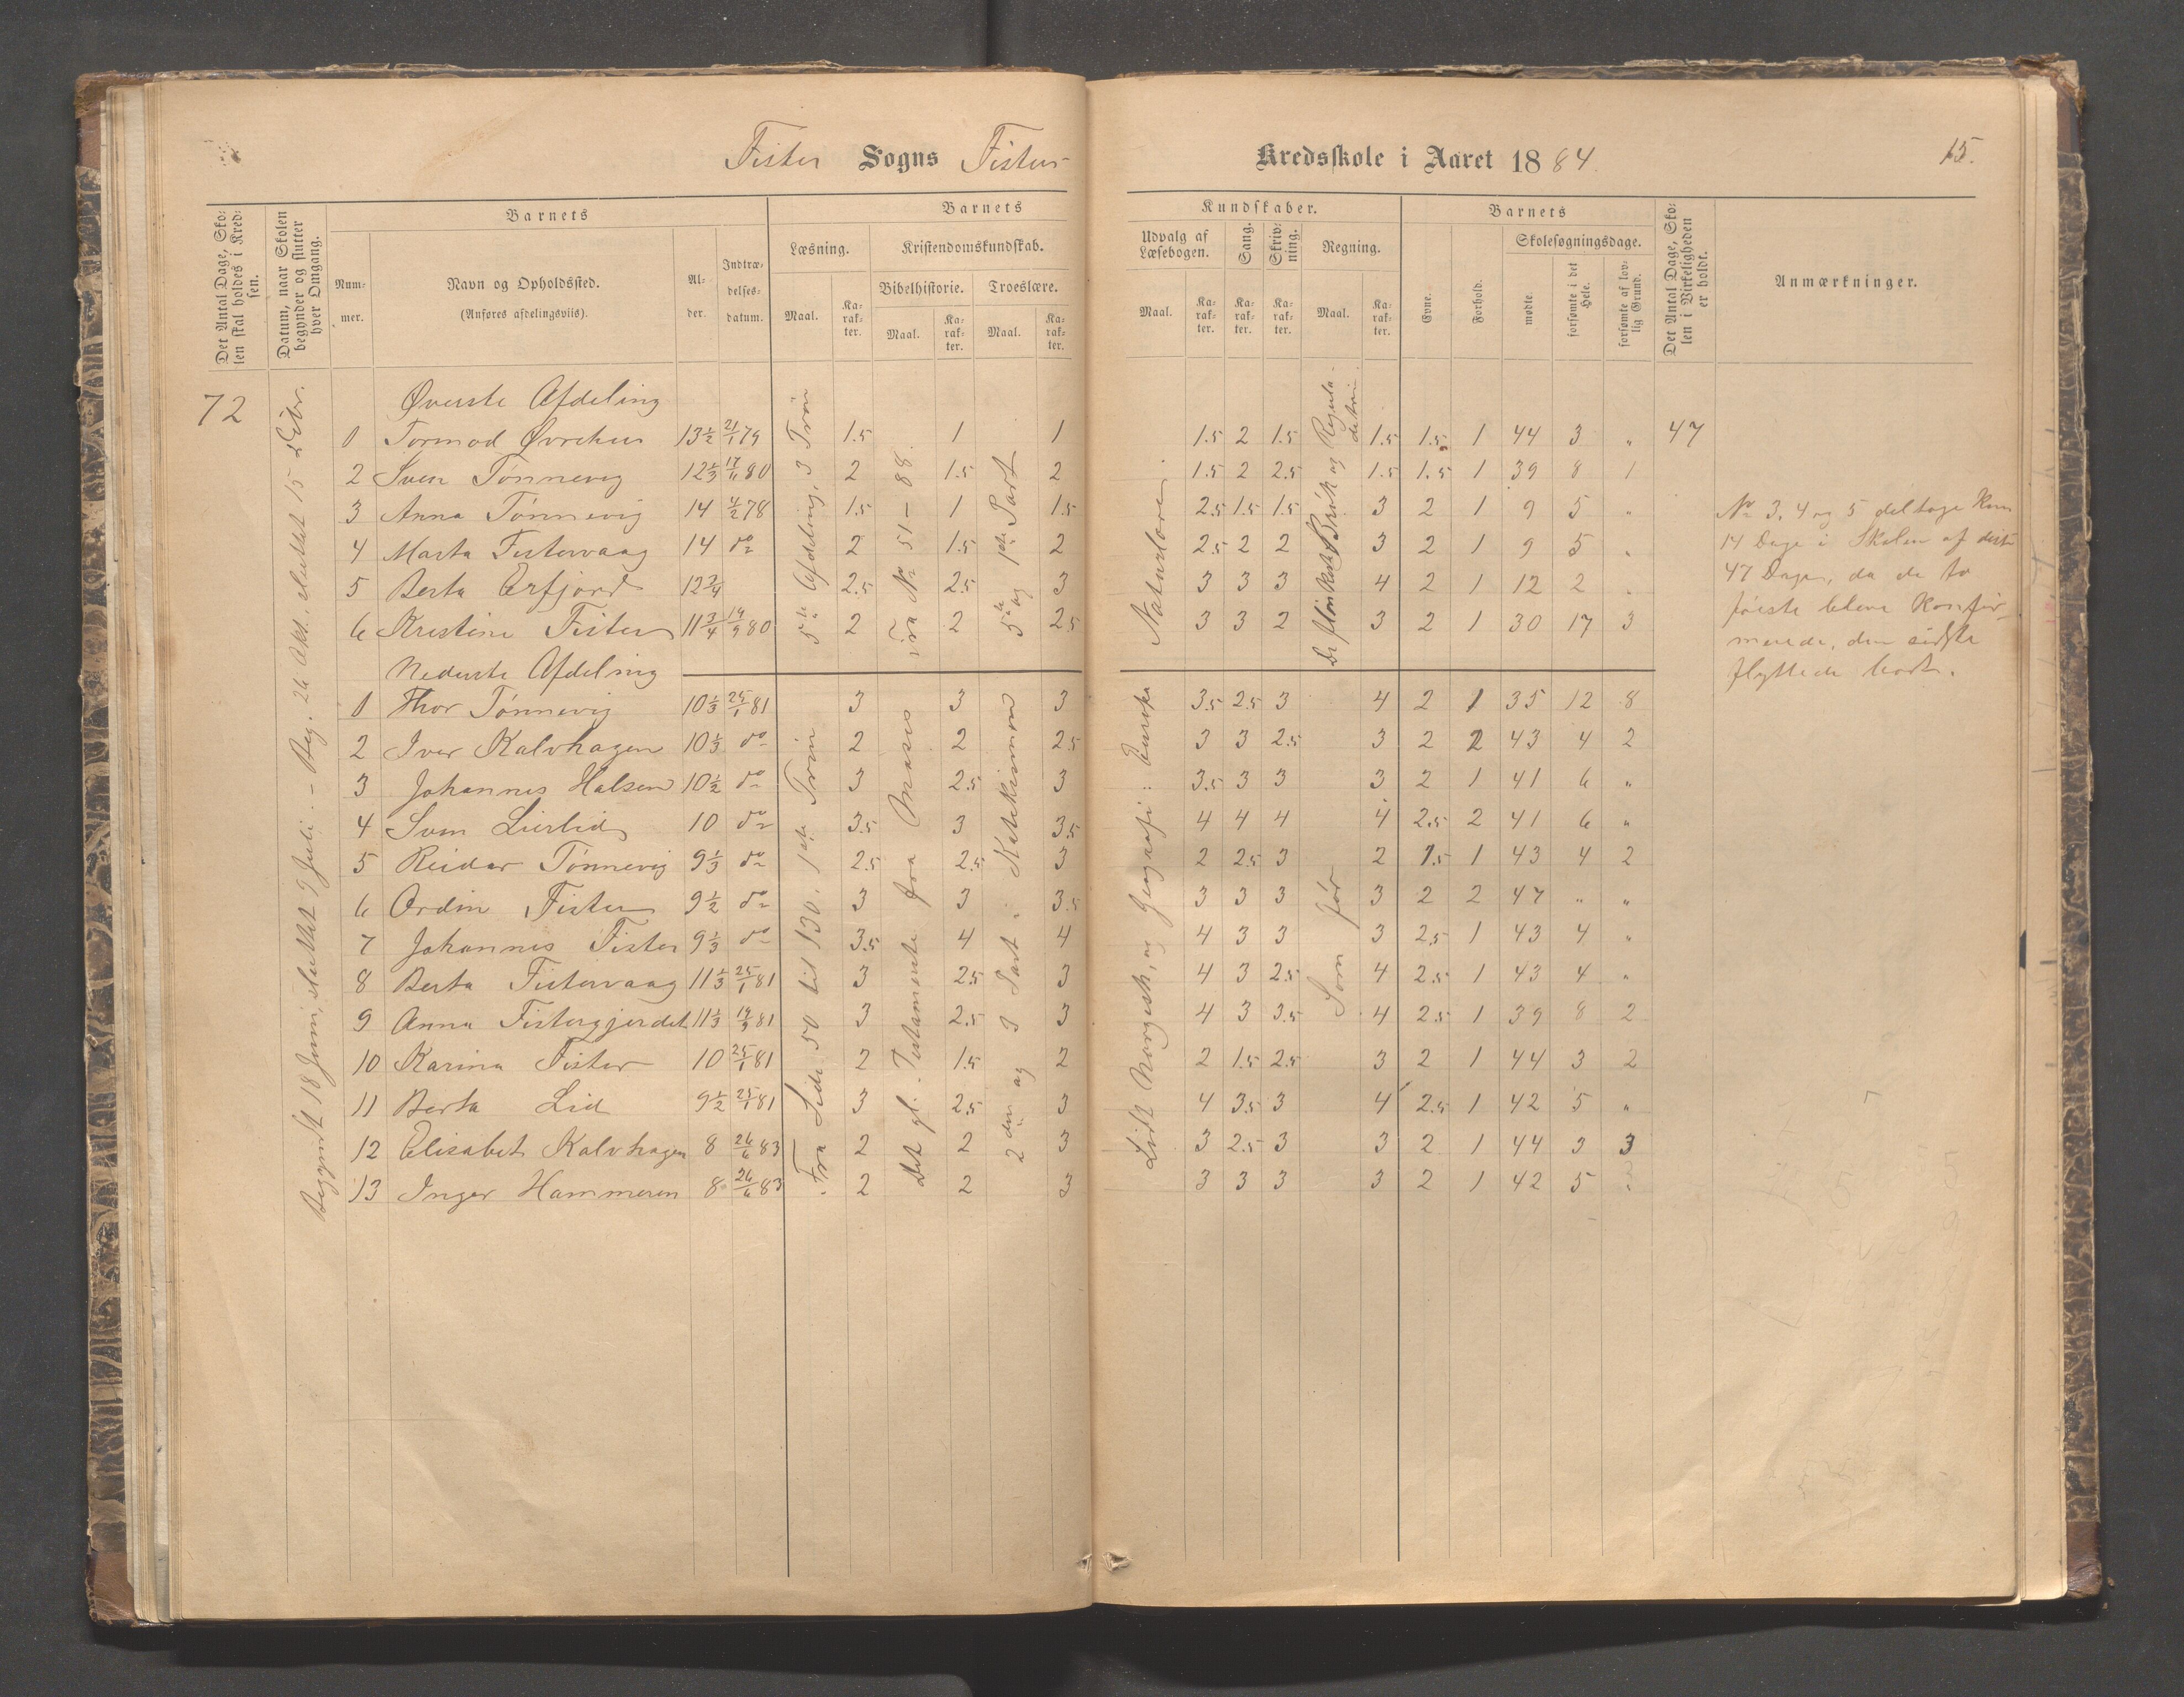 Fister Sogns Fister Kredsskole i Aaret 1884. 15.
Det Antal Dage, Skolen skal holdes i Kredsen.
Datum, naar Skolen begynder og slutter hver Omgang.
Barnets
Nummer.
Navn og Opholdssted.
(Anføres afdelingsviis).
Alder.
Indtrædelsesdatum.
Barnets Kundskaber.
Læsning.
Maal. Karakter.
Kristendomskundskab.
Bibelhistorie. Troeslære.
Maal. Karakter. Maal. Karakter.
Udvalg af Læsebogen.
Maal. Karakter.
Sang. Karakter.
Skrivning. Karakter.
Regning.
Maal. Karakter.
Barnets
Evne. Forhold.
Skolesøgningsdage.
mødte. forsømte i det Hele. forsømte af lovlig Grund.
Det Antal Dage, Skolen i Virkeligheden er holdt.
Anmærkninger.
72
Begyndt 18 Juni, sluttet 9 Juli. – Beg. 26 Okt., sluttet 15 Debr.
Øverste Afdeling
1 Tormod Øvrehus 13½ 21/1 79 1.5 1 1 1.5 2 1.5 1.5 1.5 1 44 3 „ 47
2 Sven Tønnevig 12⅓ 17/6 80 2 1.5 2 1.5 2 2.5 1.5 1.5 1 39 8 1
3 Anna Tønnevig 14 4/2 78 1.5 1 1.5 2.5 1.5 1.5 3 2 1 9 5 „
4 Marta Fistervaag 14 do 2 1.5 2 2.5 2 2 3 2 1 9 5 „
5 Berta Erfjord 12¾ 2.5 2.5 3 3 3 3 4 2 1 12 2 „
6 Kristine Fister 11¾ 14/9 80 2 2 2.5 3 3 2 3 2 1 30 17 3
5te Afdeling, 3 Trin
Fra No 51 – 88.
5te og 1ste Part
Naturlære.
De fleste Brøk og Reguladetri.
No 3, 4 og 5 deltoge kun
14 Dage i Skolen af disse
47 Dage, da de to
første bleve konfir-
merede, den sidste
flyttede bort.
Nederste Afdeling
1 Thor Tønnevig 10⅓ 25/1 81 3 3 3 3.5 2.5 3 4 2 1 35 12 8
2 Iver Kalvhagen 10⅓ do 2 2 2.5 3 3 2.5 3 2 2 43 4 2
3 Johannes Halsen 10½ do 3 2.5 3 3.5 3 3 3 2 1 41 6 „
4 Sven Lierlid 10 do 3.5 3 3.5 4 4 4 4 2.5 2 41 6 „
5 Reidar Tønnevig 9⅓ do 2.5 2.5 3 2 2.5 3 2 1.5 1 43 4 2
6 Ordin Fister 9½ do 3 3 3.5 3 3 3 3 2 2 47 „ „
7 Johannes Fister 9⅓ do 3.5 4 4 4 3 3 3 2.5 1 43 4 „
8 Berta Fistervaag 11⅓ 25/1 81 3 2.5 3 4 3 2.5 4 2.5 1 43 4 „
9 Anna Fistergjerdet 11⅓ 19/9 81 3 2.5 3 4 3 3.5 4 2.5 1 39 8 2
10 Karina Fister 10 25/1 81 2 1.5 2 2 1.5 2.5 3 2 1 44 3 2
11 Berta Lid 9½ 25/1 81 3 2.5 3 4 3.5 3 4 2.5 1 42 5 „
12 Elisabet Kalvhagen 8 26/6 83 2 2 3 3 2.5 3 3 2 1 44 3 3
13 Inger Hammeren 8 26/6 83 2 2 3 3 3 3 3 2 1 42 5 „
Fra Side 50 til 130, 1ste Trin
Det gl. Testamente fra Moses
2den og 3 Part
Lidt Norgesh. og Geografi:
Som før